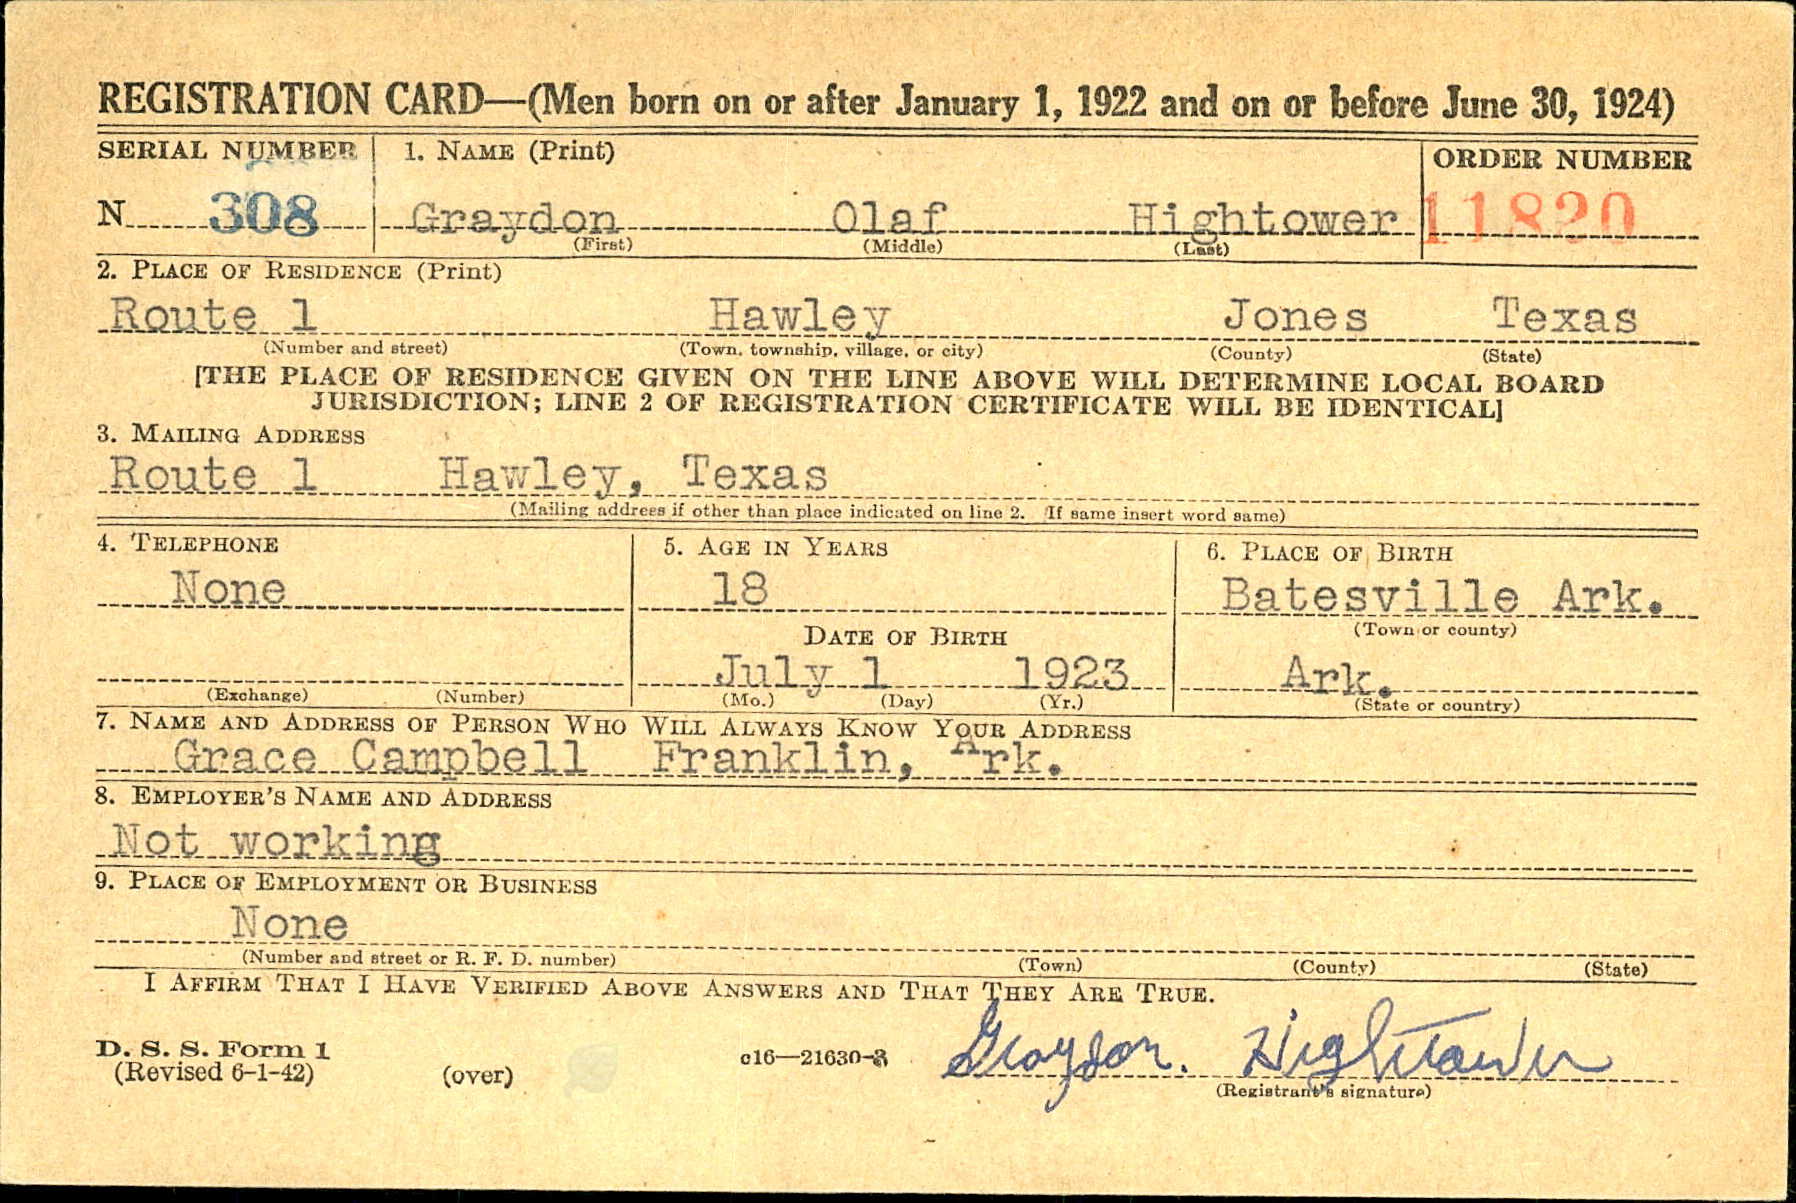 REGISTRATION CARD—(Men born on or after January 1, 1922 and on or before June 30, 1924)
SERIAL NUMBER 1. NAME (Print) ORDER NUMBER
N 308 Graydon Olaf Hightower 11820
(First) (Middle) (Last)
2. PLACE OF RESIDENCE (Print)
Route 1 Hawley Jones Texas
(Number and street) (Town, township, village, or city) (County) (State)
[THE PLACE OF RESIDENCE GIVEN ON THE LINE ABOVE WILL DETERMINE LOCAL BOARD
JURISDICTION; LINE 2 OF REGISTRATION CERTIFICATE WILL BE IDENTICAL]
3. MAILING ADDRESS
Route 1 Hawley, Texas
(Mailing address if other than place indicated on line 2. If same insert word same)
4. TELEPHONE 5. AGE IN YEARS 6. PLACE OF BIRTH
None 18 Batesville Ark.
DATE OF BIRTH (Town or county)
July 1 1923 Ark.
(Exchange) (Number) (Mo.) (Day) (Yr.) (State or country)
7. NAME AND ADDRESS OF PERSON WHO WILL ALWAYS KNOW YOUR ADDRESS
Grace Campbell Franklin, Ark.
8. EMPLOYER'S NAME AND ADDRESS
Not working
9. PLACE OF EMPLOYMENT OR BUSINESS
None
(Number and street or R. F. D. number) (Town) (County) (State)
I AFFIRM THAT I HAVE VERIFIED ABOVE ANSWERS AND THAT THEY ARE TRUE.
D. S. S. Form 1
(Revised 6-1-42) (over) c16—21630-3 Graydon. Hightower
(Registrant's signature)